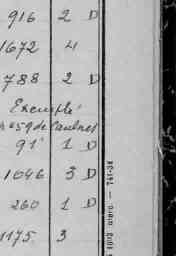 916 2 D
1672 4
788 2 D
Exempté
n° 659 de
91 1 D
1046 3 D
260 1 D
1175 3